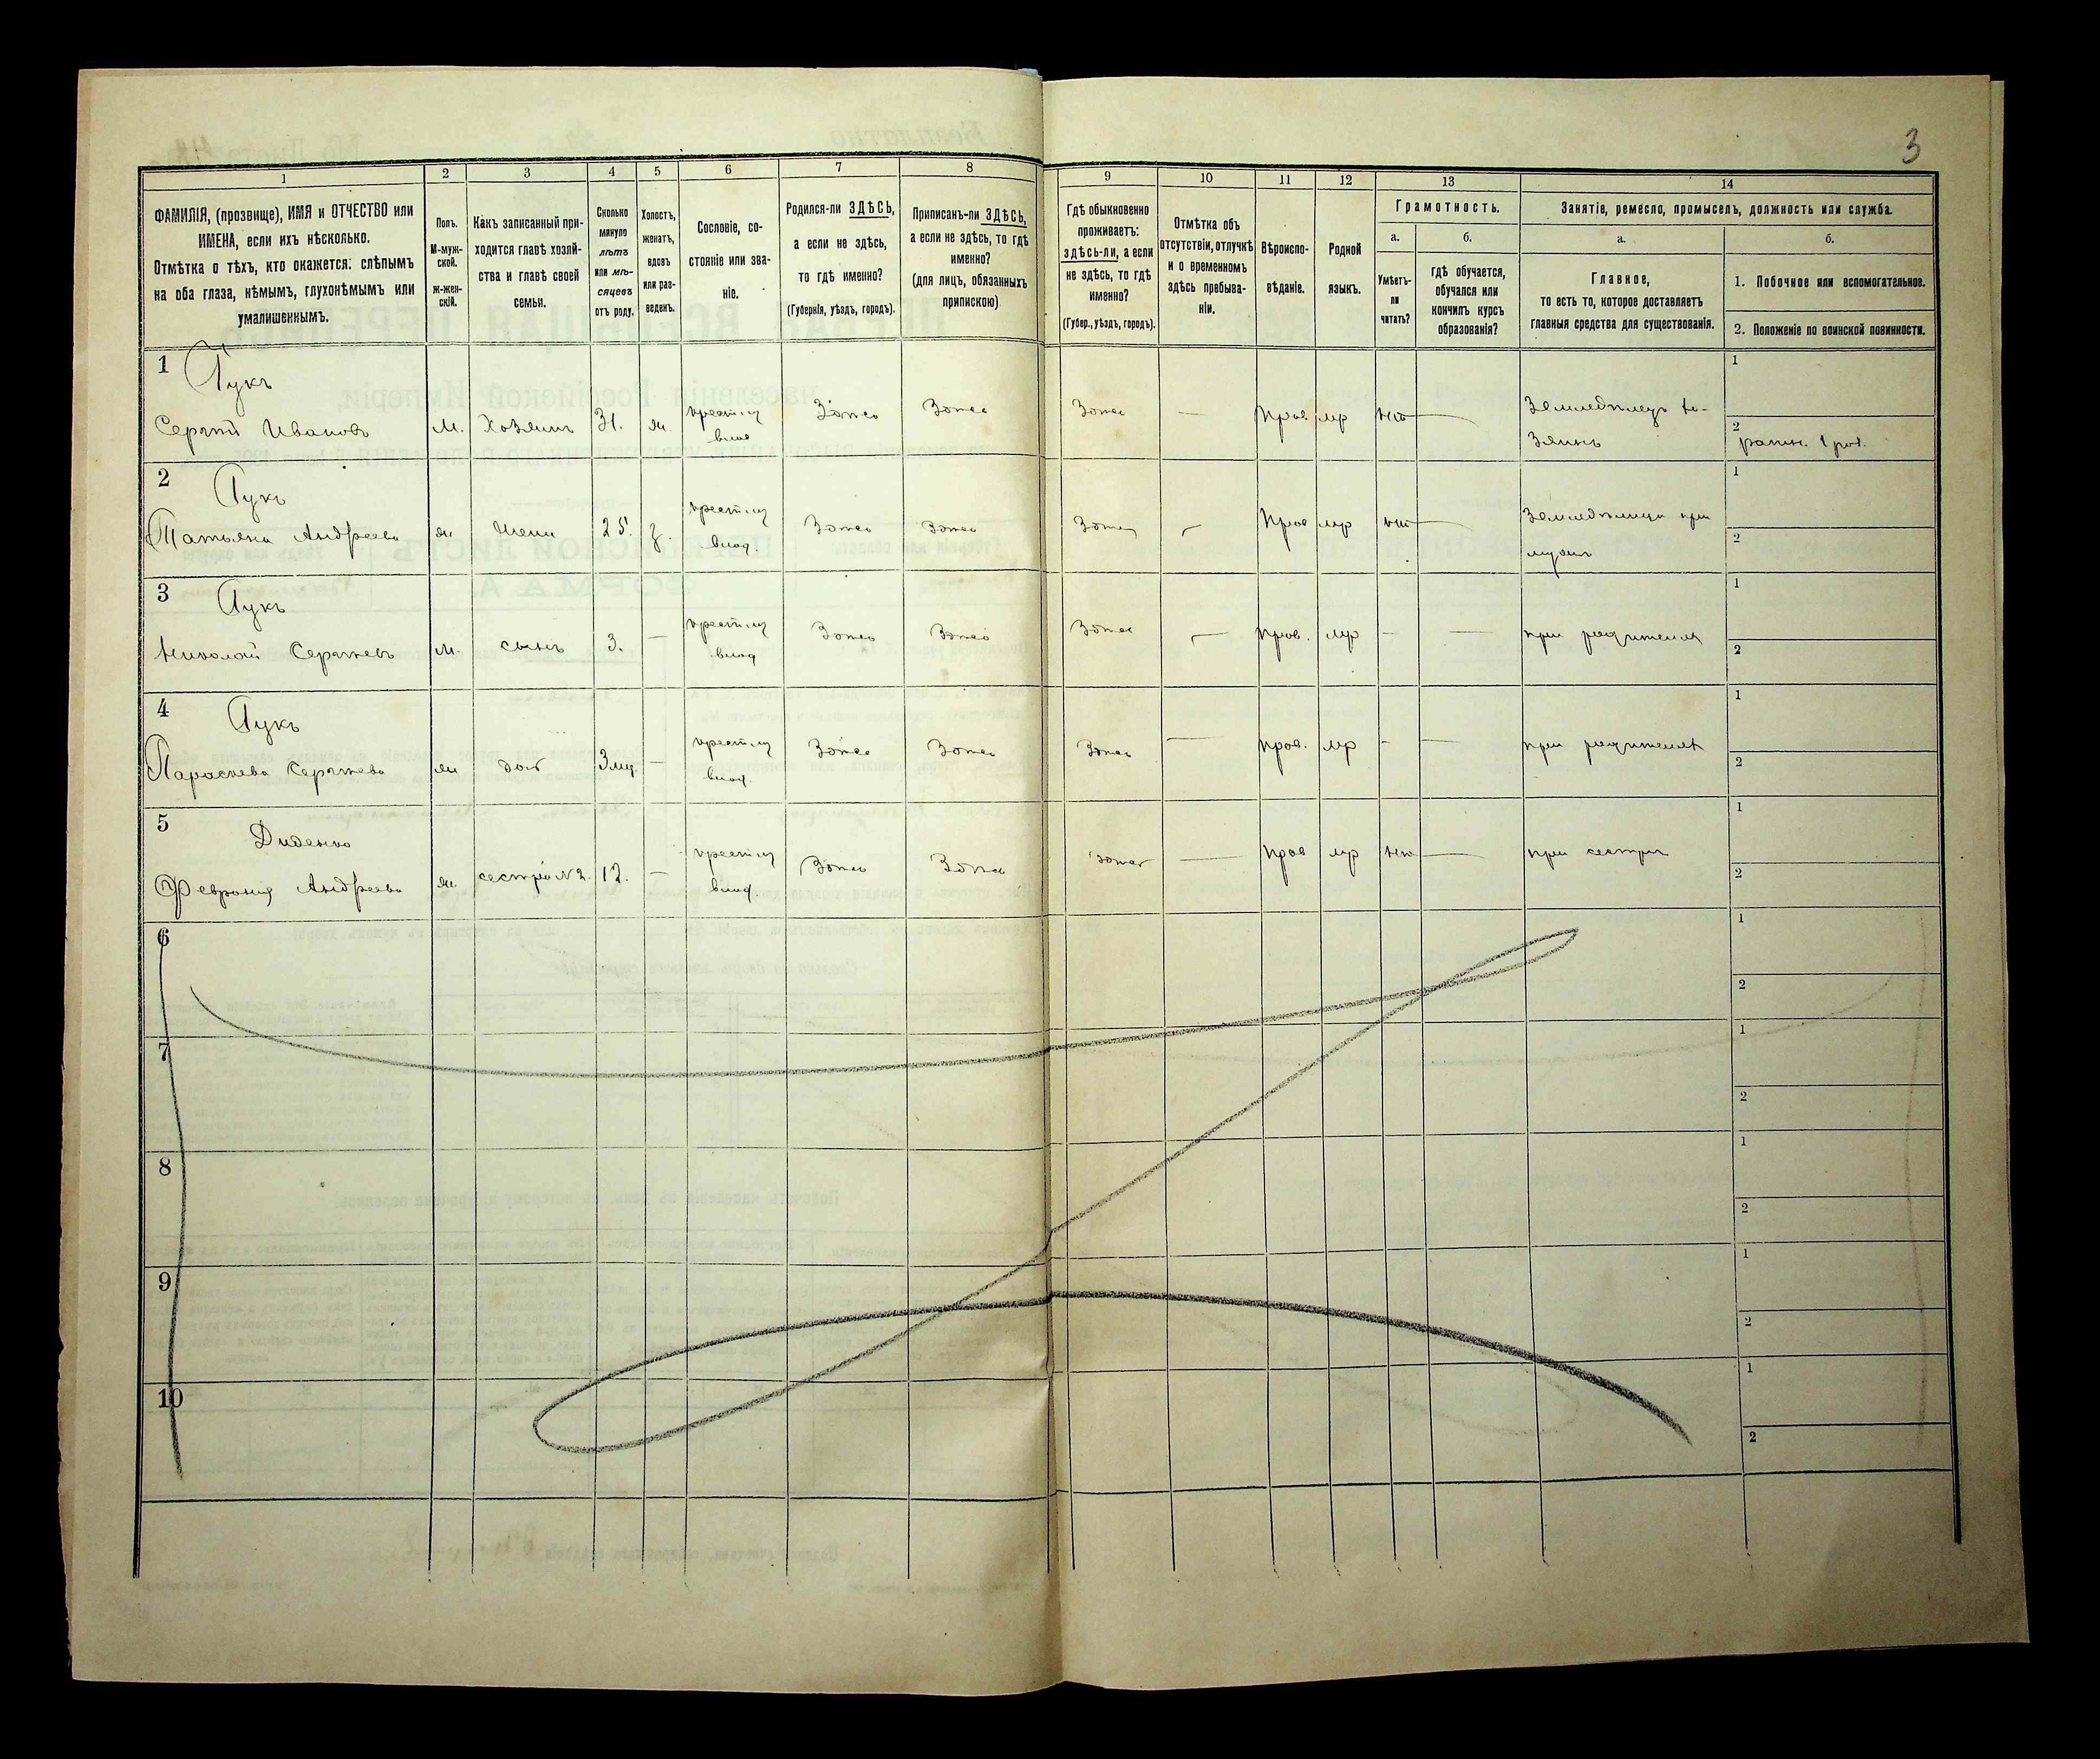 3
1 2 3 4 5 6 7 8 9 10 11 12 13 14
ФАМИЛІЯ, (прозвище), ИМЯ и ОТЧЕСТВО или
ИМЕНА, если ихъ нѣсколько.
Отмѣтка о тѣхъ, кто окажется: слѣпымъ
на оба глаза, нѣмымъ, глухонѣмымъ или
умалишеннымъ.
Полъ.
М-муж-
ской.
ж-жен-
скій.
Какъ записанный при-
ходится главѣ хозяй-
ства и главѣ своей
семьи.
Сколько
минуло
лѣтъ
или мѣ-
сяцевъ
отъ роду.
Холостъ,
женатъ,
вдовъ
или раз-
веденъ.
Сословіе, со-
стояніе или зва-
ніе.
Родился-ли ЗДѢСЬ,
а если не здѣсь,
то гдѣ именно?
(Губернія, уѣздъ, городъ).
Приписанъ-ли ЗДѢСЬ,
а если не здѣсь, то гдѣ
именно?
(для лицъ, обязанныхъ
припискою)
Гдѣ обыкновенно
проживаетъ:
здѣсь-ли, а если
не здѣсь, то гдѣ
именно?
(Губер., уѣздъ, городъ).
Отмѣтка объ
отсутствіи, отлучкѣ
и о временномъ
здѣсь пребыва-
ніи.
Вѣроиспо-
вѣданіе.
Родной
языкъ.
Грамотность.
а.
Умѣетъ-
ли
читать?
б.
гдѣ обучается,
обучался или
кончилъ курсъ
образованія?
Занятіе, ремесло, промыселъ, должность или служба.
а.
Главное,
то есть то, которое доставляетъ
главныя средства для существованія.
б.
1. Побочное или вспомогательное.
2. Положеніе по воинской повинности.
1
Сергѣй Ивановъ М. Хозяинъ 31. ж. Здѣсь Здѣсь Здѣсь — Прав. мр нѣт —
1
2 ратн. 1 раз.
2
Татьяна Андреева ж жена 25. з. Здѣсь Здѣсь Здѣсь — Прав мр нѣт —
1
2
3
Николай Сергѣевъ М. сынъ 3. — Здѣсь Здѣсь Здѣсь — прав. мр — — при родителях
1
2
4
Параскева Сергѣева ж доч 3 мц. — Здѣсь Здѣсь Здѣсь — прав. мр — — при родителях
1
2
5 Диденко
Феврония Андреева ж. сестра N 2. 12. — Здѣсь Здѣсь Здѣсь — прав мр нѣт — при сестрѣ
1
2
6
1
2
7
1
2
8
1
2
9
1
2
10
1
2